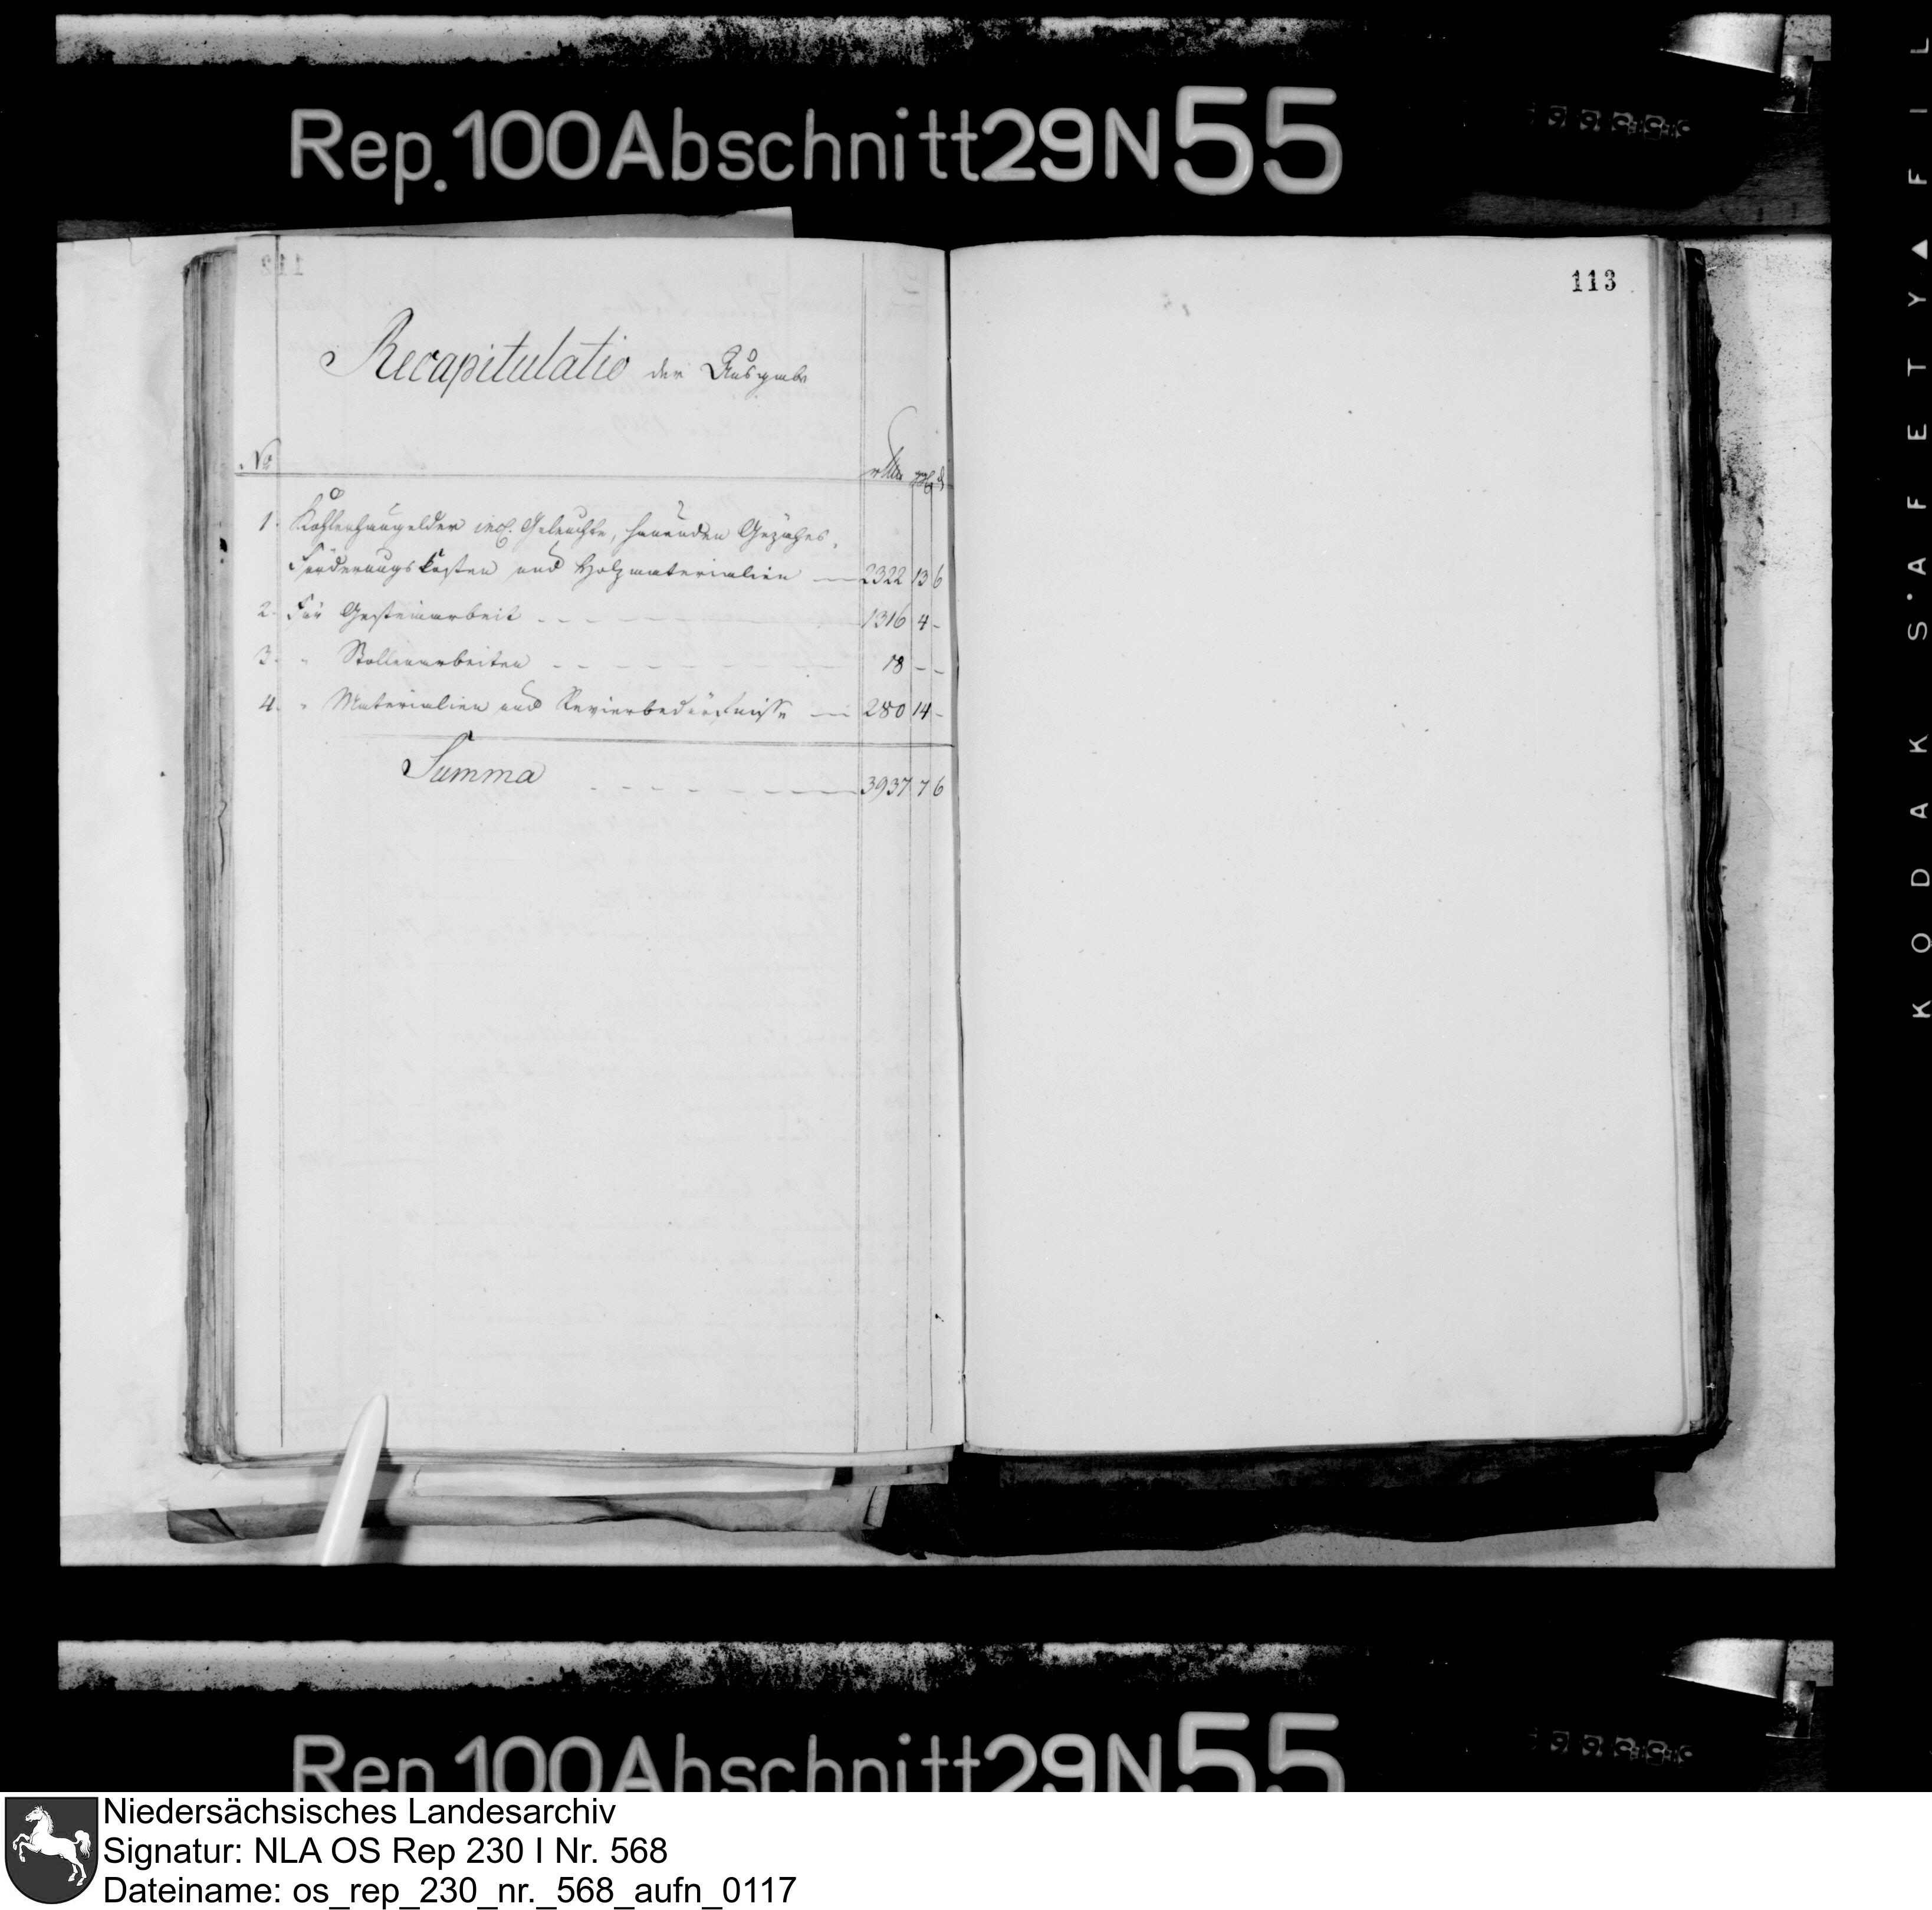 Rep. 100 Abschnitt 29 N 55
113
Recapitulatio der Ausgabe
No
1. Kohlenhaugelder incl. Geleuchte, hauenden Gezähes,
Förderungskosten und Holzmaterialien 2322 13 6
2. Für Gesteinarbeit - - - - - - 1316 4 -
3. " Stollenarbeiten - - - - - - 18 - -
4. " Materialien und Revierbedürfnisse 280 14 -
Summa - - - - - - 3937 7 6
KODAK S'AFETY▲FIL
Rep. 100 Abschnitt 29 N 55
Niedersächsisches Landesarchiv
Signatur: NLA OS Rep 230 I Nr. 568
Dateiname: os_rep_230_nr._568_aufn_0117